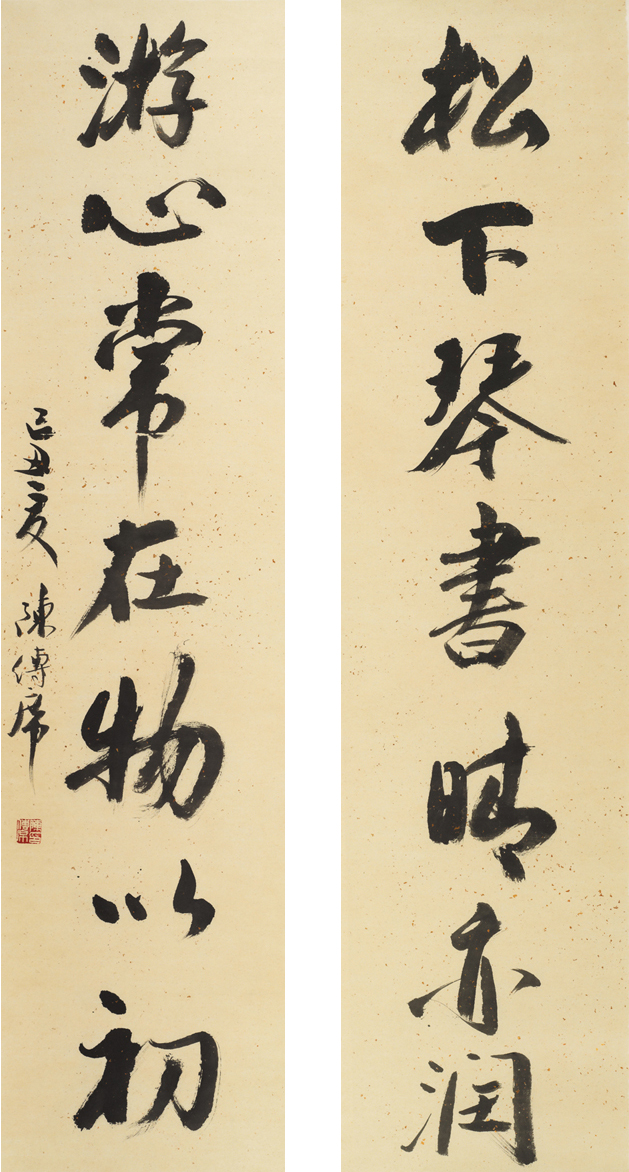 松下琴書晴亦潤
游心常在物以初
己丑夏 陳傳席